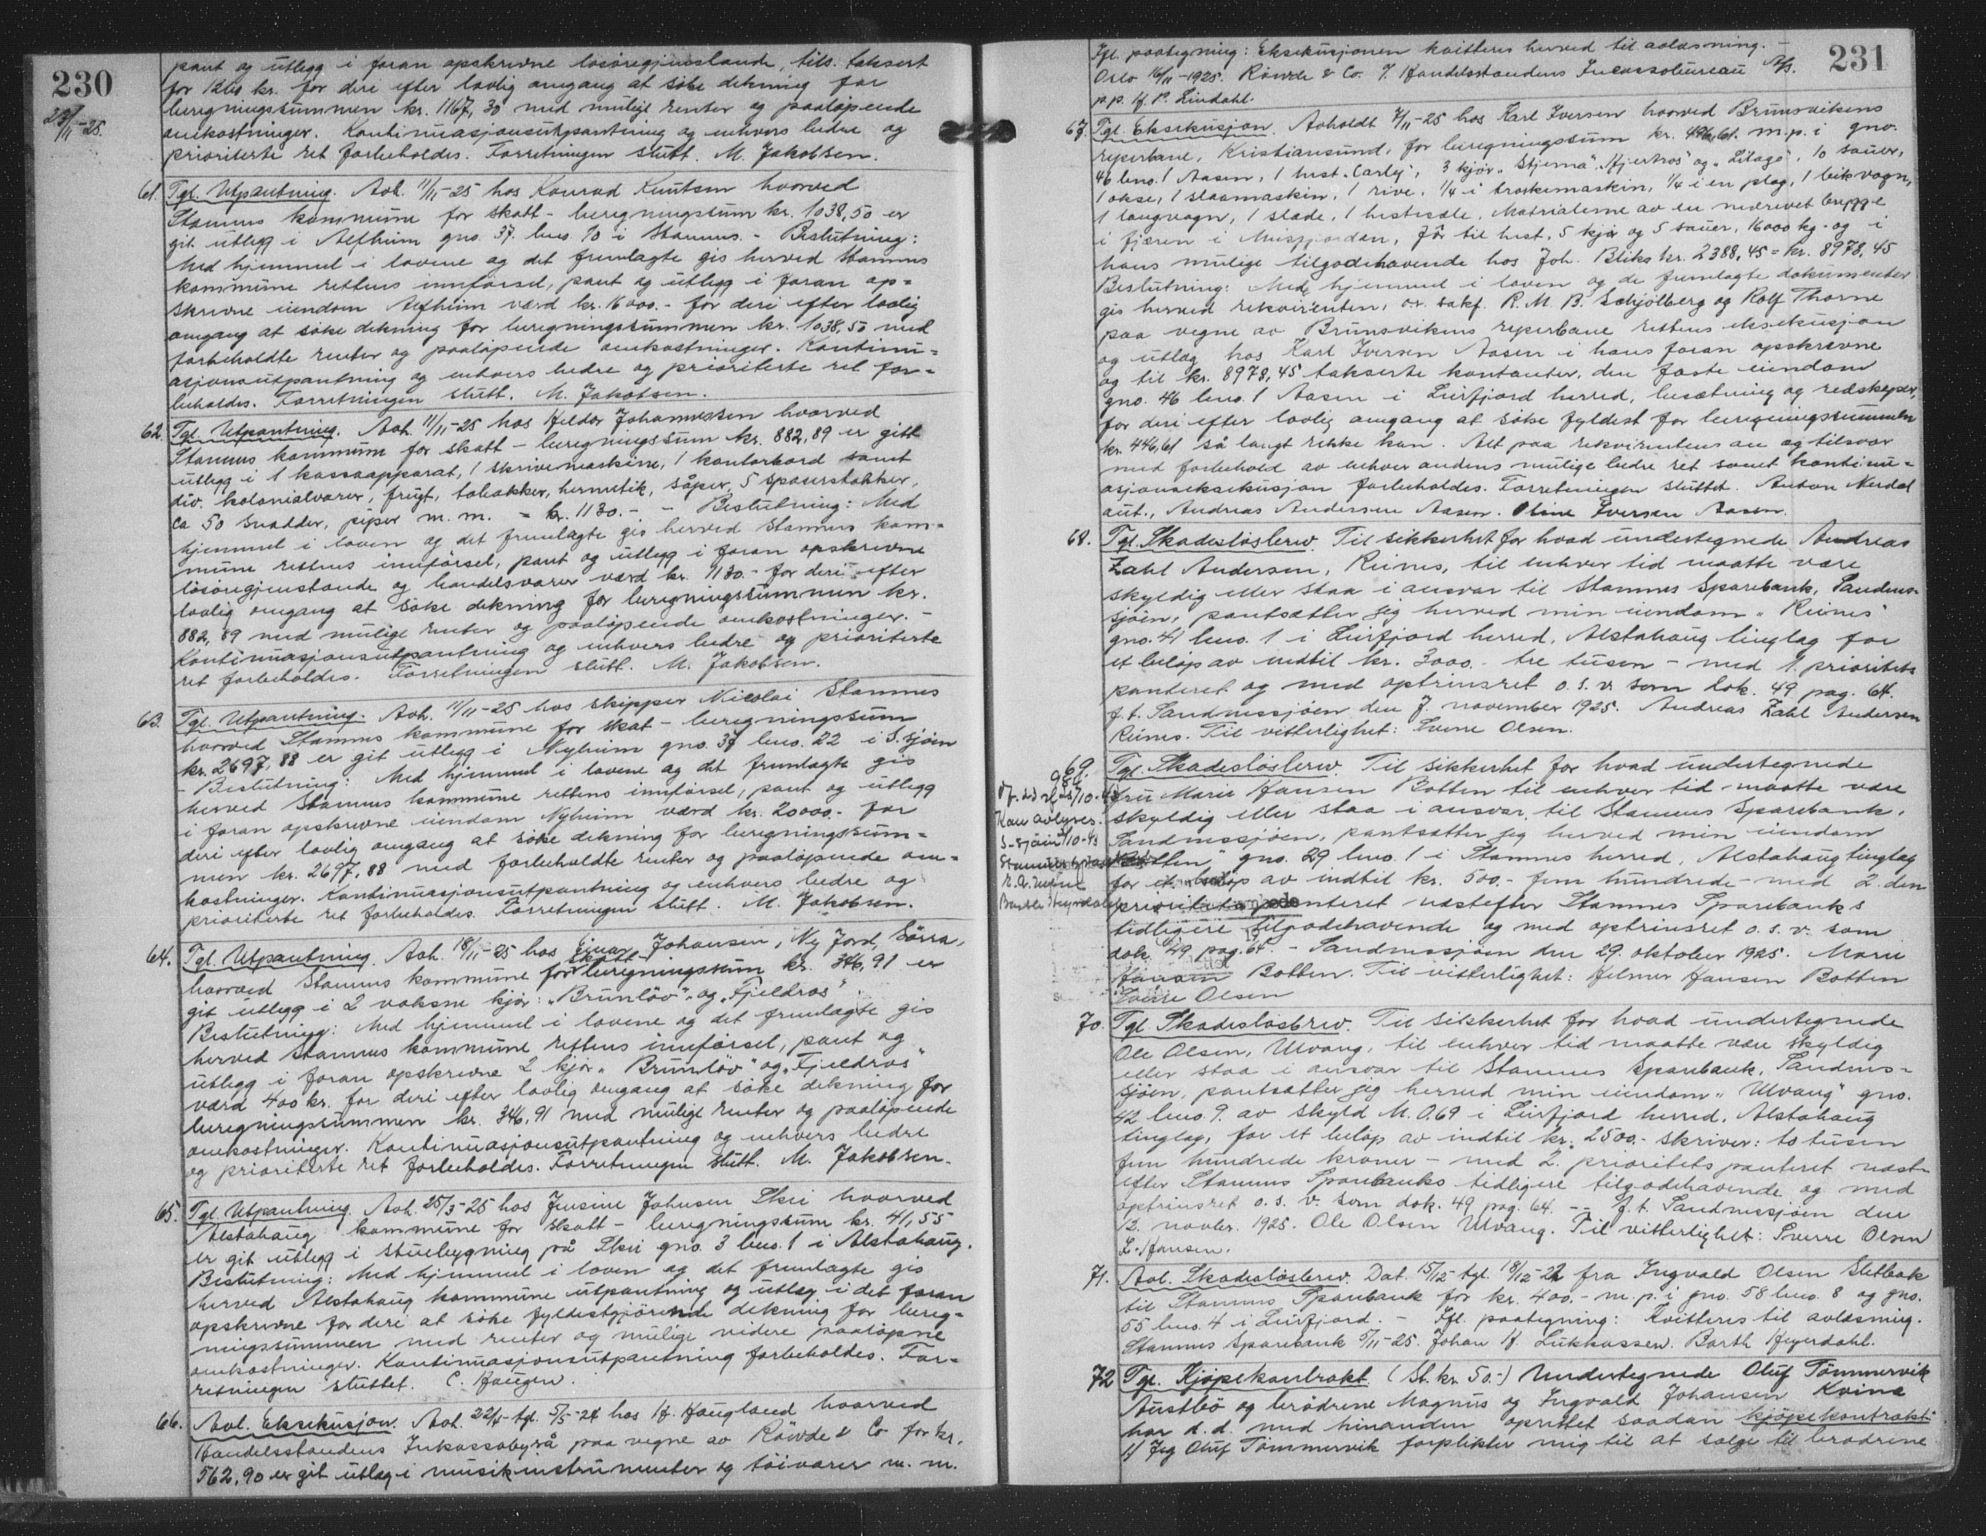 230
23/11-25.
pant og utlegg i foran opskrevne lösöregjenstande, tils. taksert
for 1200 kr. for deri efter lovlig omgang at söke dekning for
beregningssummen kr. 1167,30 med mulige renter og paalöpende
omkostninger. Kontinuasjonsutpantning og enhvers bedre og
prioriterte ret forbeholdes. Forretningen slutt. M. Jakobsen.
61. Tgl. Utpantning. Avh. 11/11-25 hos Konrad Knutsen hvorved
Stamnes kommune for skatt - beregningssum kr. 1038,50 er
git utlegg i Alfheim gno. 37. bno. 10 i Stamnes. - Beslutning:
Med hjemmel i lovene og det fremlagte gis herved Stamnes
kommune rettens innförsel, pant og utlegg i foran op-
skrevne eiendom Alfheim værd kr. 16000.- for deri efter lovlig
omgang at söke dekning for beregningssummen kr. 1038,50 med
forbeholdte renter og paalöpende omkostninger. Kontinu-
asjonsutpantning og enhvers bedre og prioriterte ret for-
beholdes. Forretningen slutt. M. Jakobsen.
62. Tgl. Utpantning. Avh. 11/11-25 hos Heldor Johannessen hvorved
Stamnes kommune for skatt - beregningssum kr. 882,89 er gitt
utlegg i 1 kassaapparat, 1 skrivemaskine, 1 kontorbord samt
div. kolonialvarer, frugt, tobakker, hermetik, såper, 5 spaserstokker,
ca 50 snadder, piper m.m. = kr. 1130.- - Beslutning: Med
hjemmel i loven og det fremlagte gis herved Stamnes kom-
mune rettens innförsel, pant og utlegg i foran opskrevne
lösöregjenstande og handelsvarer værd kr. 1130.- for deri efter
lovlig omgang at söke dekning for beregningssummen kr.
882,89 med mulige renter og paalöpende omkostninger. -
Kontinuasjonsutpantning og enhvers bedre og prioriterte
ret forbeholdes. Forretningen slutt. M. Jakobsen.
63. Tgl. Utpantning. Avh. 11/11-25 hos skipper Nicolai Stamnes
hvorved Stamnes kommune for skat - beregningssum
kr. 2697,88 er git utlegg i Nyheim gno. 37 bno. 22 i S.sjöen
- Beslutning: Med hjemmel i lovene og det fremlagte gis
herved Stamnes kommune rettens innförsel, pant og utlegg
i foran opskrevne eiendom Nyheim værd kr. 20000.- for
deri efter lovlig omgang at söke dekning for beregningssum-
men kr. 2697,88 med forbeholdte renter og paalöpende om-
kostninger. Kontinuasjonsutpantning og enhvers bedre og
prioriterte ret forbeholdes. Forretningen slutt. M. Jakobsen.
64. Tgl. Utpantning. Avh. 18/11-25 hos Einar Johansen, Ny Jord, Sörra,
hvorved Stamnes kommune for skatt beregningssum kr. 346,91 er
git utlegg i 2 voksne kjör: "Brunlöv" og "Fjeldros".
Beslutning: Med hjemmel i lovene og det fremlagte gis
herved Stamnes kommune rettens innförsel, pant og
utlegg i foran opskrevne 2 kjör "Brunlöv" og "Fjeldros"
værd 400 kr. for deri efter lovlig omgang at söke dekning for
beregningssummen kr. 346,91 med mulige renter og paalöpende
omkostninger. Kontinuasjonsutpantning og enhvers bedre
og prioriterte ret forbeholdes. Forretningen slutt. M. Jakobsen.
65. Tgl. Utpantning. Avh. 25/3-25 hos Jensine Johnsen Skei hvorved
Alstahaug kommune for skatt - beregningssum kr. 41,55
er git utlegg i stuebygning på Skei gno. 3 bno. 1 i Alstahaug.
Beslutning: Med hjemmel i loven og det fremlagte gis
herved Alstahaug kommune utpantning og utlæg i det foran
opskrevne for deri at söke fyldestgjörende dekning for bereg-
ningssummen med renter og mulige videre paalöpne
omkostninger. Kontinuasjonsutpantning forbeholdes. For-
retningen sluttet. C. Haugen.
66. Avl. Eksekusjon. Avh. 22/4-tgl. 5/5-24 hos H. Haugland hvorved
Handelsstandens Inkassobyrå paa vegne av Röwde & Co for kr.
562,90 er git utlæg i musikinstrumenter og töivarer m. m.
231
Ifl. paategning: Eksekusjonen kvitteres herved til avlæsning. -
Oslo 16/11-1925. Röwde & Co. f. Handelsstandens Incassobureau A/s.
p.p. H. P. Lindahl.
67. Tgl. Eksekusjon. Avholdt 7/11-25 hos Karl Iversen hvorved Brunsvikens
reperbane, Kristiansund, for beregningssum kr. 446,61. m.p. i gno.
46 bno. 1 Aasen, 1 hest "Carley", 3 kjör "Stjerna", "Hjertros" og "Litago", 10 sauer,
1 okse, 1 slaamaskin, 1 rive, 1/4 i træskemaskin, 1/4 i en plog, 1 beikvogn,
1 langvogn, 1 slæde, 1 hestesæle, Matrialerne av en nedrevet brygge
i fjæren i Meisfjorden, för til hest, 5 kjör og 5 sauer, 16000 kg. og i
hans mulige tilgodehavende hos Joh. Bliks kr. 2388,45 = kr. 8978,45
Beslutning: Med hjemmel i loven og de fremlagte dokumenter
gis herved rekvirenten, o.r. sakf. R. M. B. Schjölberg og Rolf Thorne
paa vegne av Brunsvikens reperbane rettens eksekusjon
og utlæg hos Karl Iversen Aasen i hans foran opskrevne
og til kr. 8978,45 takserte kontanter, den faste eiendom
gno. 46 bno. 1 Aasen i Leirfjord herred, besætning og redskaper,
for deri efter lovlig omgang at söke fyldest for beregningssummen
kr. 446,61 så langt rekke kan. Alt paa rekvirentens an og tilsvar
med forbehold av enhver andens mulige bedre ret samt kontinu-
asjonseksekusjon forbeholdes. Forretningen sluttet. Anton Nerdal
aut., Andreas Andersen Aasen. Oline Iversen Aasen.
68. Tgl. Skadeslösbrev. Til sikkerhet for hvad undertegnede Andreas
Zahl Andersen, Reines, til enhver tid maatte være
skyldig eller staa i ansvar til Stamnes Sparebank, Sandnes-
sjöen, pantsætter jeg herved min eiendom "Reines"
gno. 41 bno. 1 i Leirfjord herred, Alstahaug tinglag for
et belöp av indtil kr. 3000.- tre tusen - med 1. prioritets
panteret og med optrinsret o.s.v. som dok. 49 pag. 64.
p.t. Sandnessjöen den 7. november 1925. Andreas Zahl Andersen
Reines. Til vitterlighet: Sverre Olsen.
69. Tgl. Skadeslösbrev. Til sikkerhet for hvad undertegnede
fru Marie Hansen Botten til enhver tid maatte være
skyldig eller staa i ansvar til Stamnes Sparebank,
Sandnessjöen, pantsætter jeg herved min eiendom
"Botten" gno. 29 bno. 1 i Stamnes herred, Alstahaug tinglag
for et belöp av indtil kr. 500.- fem hundrede - med 2. den
prioritets panteret næstefter Stamnes Sparebanks
tidligere tilgodehavende og med optrinsret o.s.v. som
dok. 49 pag. 64. - Sandnessjöen den 29. oktober 1925. Marie
Hansen Botten. Til vitterlighet: Helmer Hansen Botten
Sverre Olsen
Kan avlyses.
S-sjöen
70. Tgl. Skadeslösbrev. Til sikkerhet for hvad undertegnede
Ole Olsen, Ulvang, til enhver tid maatte være skyldig
eller staa i ansvar til Stamnes Sparebank, Sandnes-
sjöen, pantsætter jeg herved min eiendom "Ulvang" gno.
42 bno. 9. av skyld M. 0,69 i Leirfjord herred, Alstahaug
tinglag, for et belöp av indtil kr. 2500.- skriver: to tusen
fem hundrede kroner - med 2. prioritets panteret næst-
efter Stamnes Sparebanks tidligere tilgodehavende og med
optrinsret o.s.v. som dok. 49 pag. 64. -- p.t. Sandnessjöen den
13. novbr. 1925. Ole Olsen Ulvang. Til vitterlighet: Sverre Olsen
L. Hansen.
71. Avl. Skadeslösbrev. Dat. 15/12-tgl. 18/12-22 fra Ingvald Olsen Sletbak
til Stamnes Sparebank for kr. 400.- m.p. i gno. 58 bno. 8 og gno.
55 bno. 4 i Leirfjord. - Ifl. paategning: Kvitteres til avlæsning.
Stamnes Sparebank 5/11-25. Johan H. Lukkassen. Barth Heyerdahl.
72 Tgl. Kjöpekontrakt (St. kr. 50.-) Undertegnede Oluf Tömmervik
Austbö og brödrene Magnus og Ingvald Johansen Kvina
har d.d. med hinanden oprettet saadan kjöpekontrakt:
1/ Jeg Oluf Tömmervik forplikter mig til at sælge til brödrene